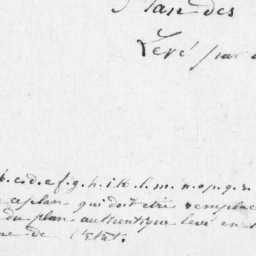 Plan des
Levé par
b.c.d.e.f.g.h.i.k.l.m.n.o.p.q.r.
plan qui doit être remplacé
du plan authentique levé en
de l'Etat.